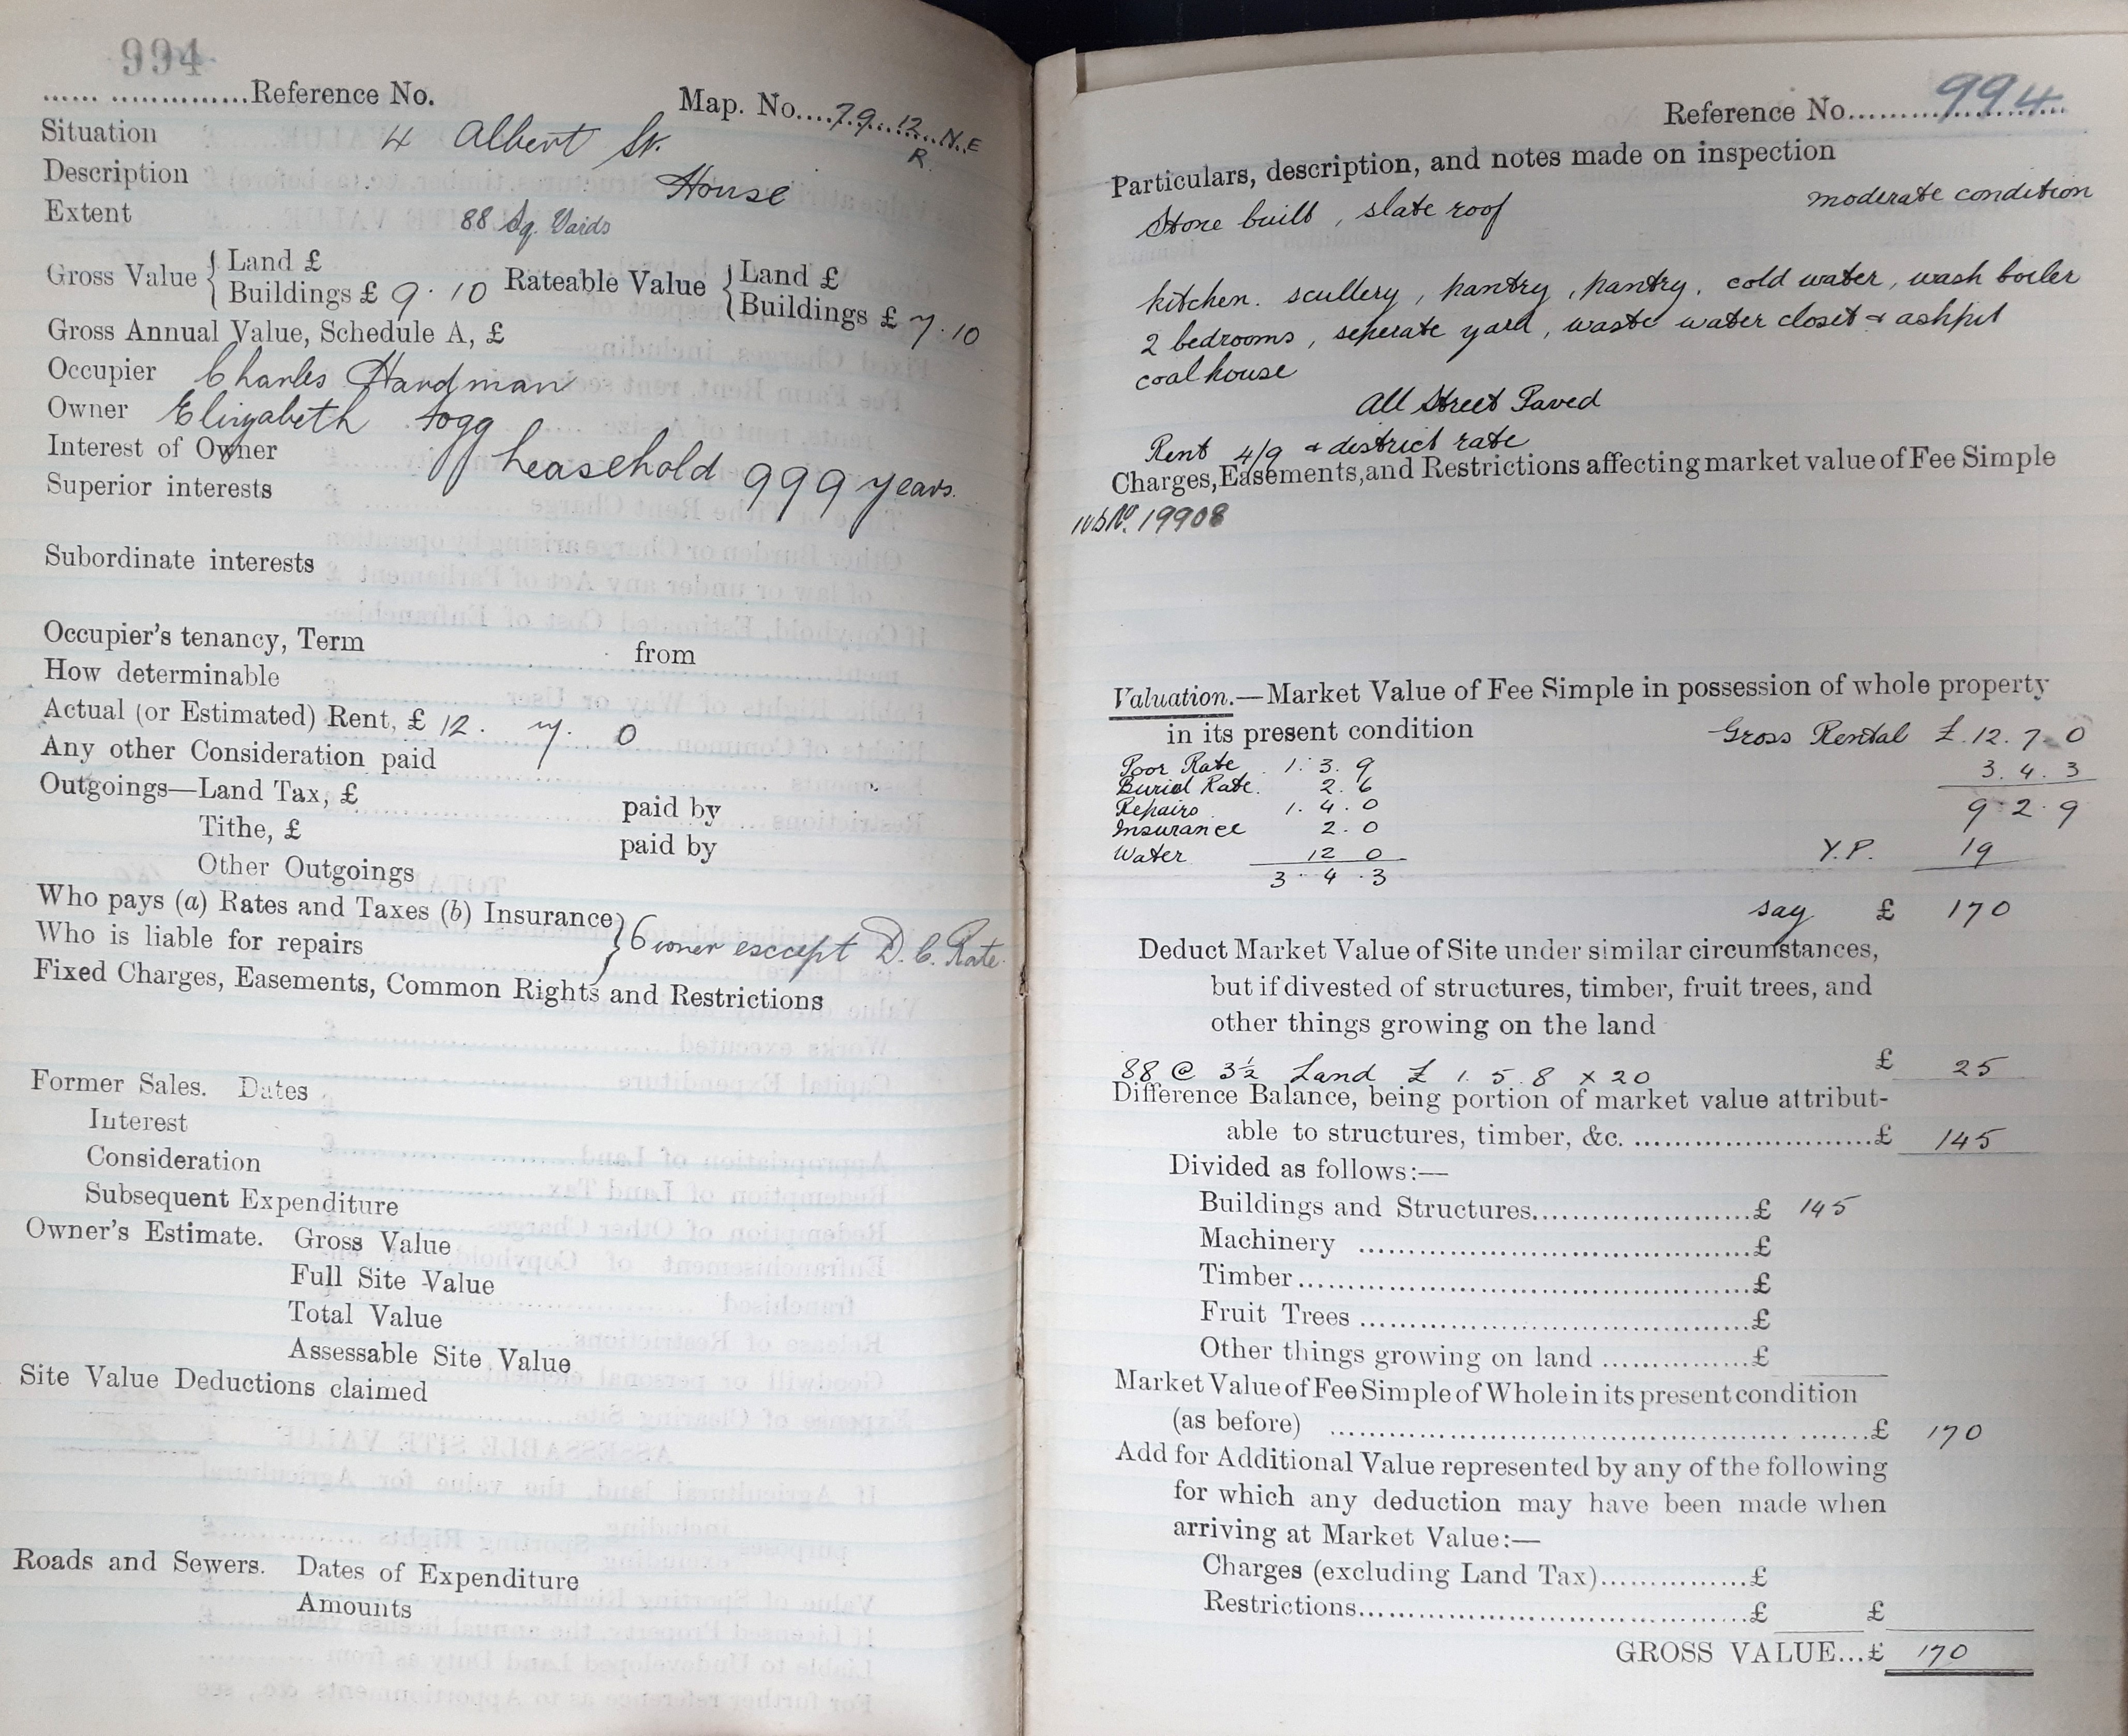 994
...... ..............Reference No.
Map. No....79..12..N.E
R.
Situation 4 Albert St.
Description House
Extent 88 Sq. Yards
Gross Value { Land £
Buildings £ 9.10
Rateable Value { Land £
Buildings £ 7.10
Gross Annual Value, Schedule A, £
Occupier Charles Hardman
Owner Elizabeth Fogg
Interest of Owner Leasehold 999 years.
Superior interests
Subordinate interests
Occupier's tenancy, Term from
How determinable
Actual (or Estimated) Rent, £ 12. 7. 0
Any other Consideration paid
Outgoings—Land Tax, £ paid by
Tithe, £ paid by
Other Outgoings
Who pays (a) Rates and Taxes (b) Insurance } Owner esccept D. C. Rate.
Who is liable for repairs
Fixed Charges, Easements, Common Rights and Restrictions
Former Sales. Dates
Interest
Consideration
Subsequent Expenditure
Owner's Estimate. Gross Value
Full Site Value
Total Value
Assessable Site Value
Site Value Deductions claimed
Roads and Sewers. Dates of Expenditure
Amounts
Reference No. 994
Particulars, description, and notes made on inspection
Stone built, slate roof moderate condition
kitchen. scullery, pantry, pantry, cold water, wash boiler
2 bedrooms, seperate yard, waste water closet & ashpit
coalhouse
All Street Paved
Rent 4/9 & district rate
Charges, Easements, and Restrictions affecting market value of Fee Simple
No. 19908
Valuation.—Market Value of Fee Simple in possession of whole property
in its present condition Gross Rental £.12.7.0
Poor Rate 1.3.9 3.4.3
Burial Rate. 2.6
Repairs 1.4.0 9.2.9
Insurance 2.0
Water 12 0 Y.P. 19
3.4.3
say £ 170
Deduct Market Value of Site under similar circumstances,
but if divested of structures, timber, fruit trees, and
other things growing on the land
88 @ 3½ Land £ 1.5.8 x 20 £ 25
Difference Balance, being portion of market value attribut-
able to structures, timber, &c. ........................£ 145
Divided as follows:—
Buildings and Structures......................£ 145
Machinery ........................................£
Timber..............................................£
Fruit Trees .......................................£
Other things growing on land ...............£
Market Value of Fee Simple of Whole in its present condition
(as before) ..................................................... .......£ 170
Add for Additional Value represented by any of the following
for which any deduction may have been made when
arriving at Market Value:—
Charges (excluding Land Tax)...............£
Restrictions.......................................£ £
GROSS VALUE...£ 170